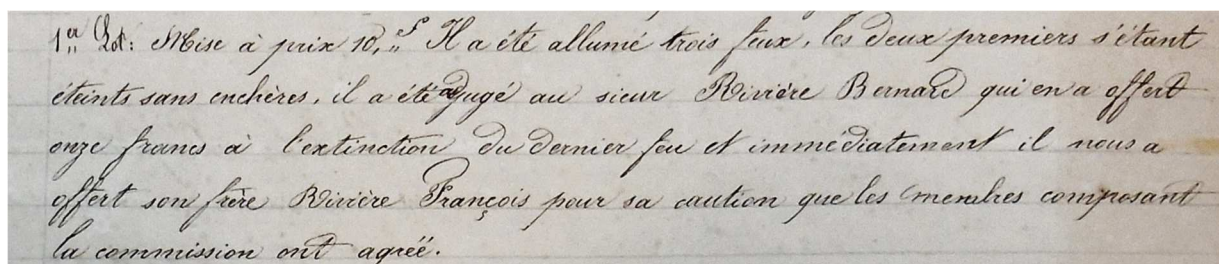 1er Lot: Mise à prix 10,,f Il a été allumé trois feux, les deux premiers s'étant
éteints sans enchères, il a été adjugé au sieur Rivière Bernard qui en a offert
onze francs à l'extinction du dernier feu et immédiatement il nous a
offert son frère Rivière François pour sa caution que les membres composant
la commission ont agréé.